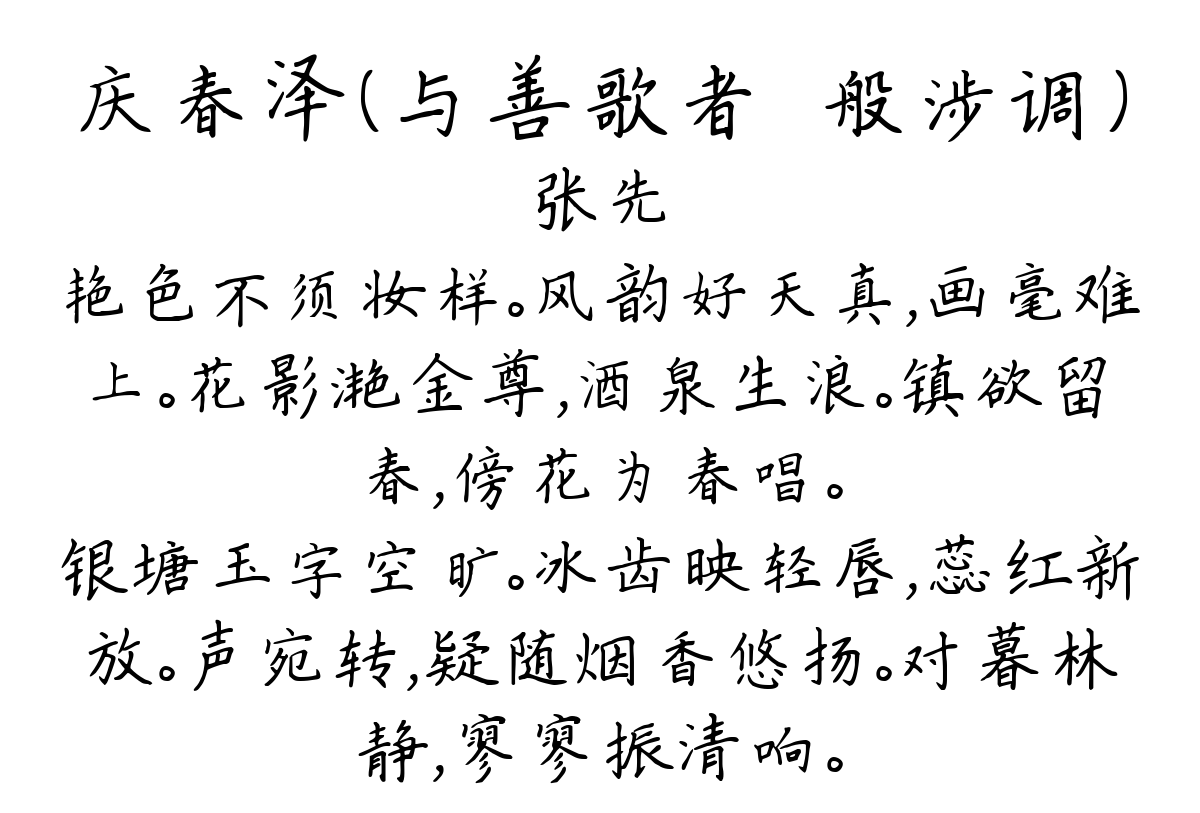 庆春泽(与善歌者 般涉调)
张先
艳色不须妆样。风韵好天真,画毫难
上。花影滟金尊,酒泉生浪。镇欲留
春,傍花为春唱。
银塘玉字空旷。冰齿映轻唇,蕊红新
放。声宛转,疑随烟香悠扬。对暮林
静,寥寥振清响。